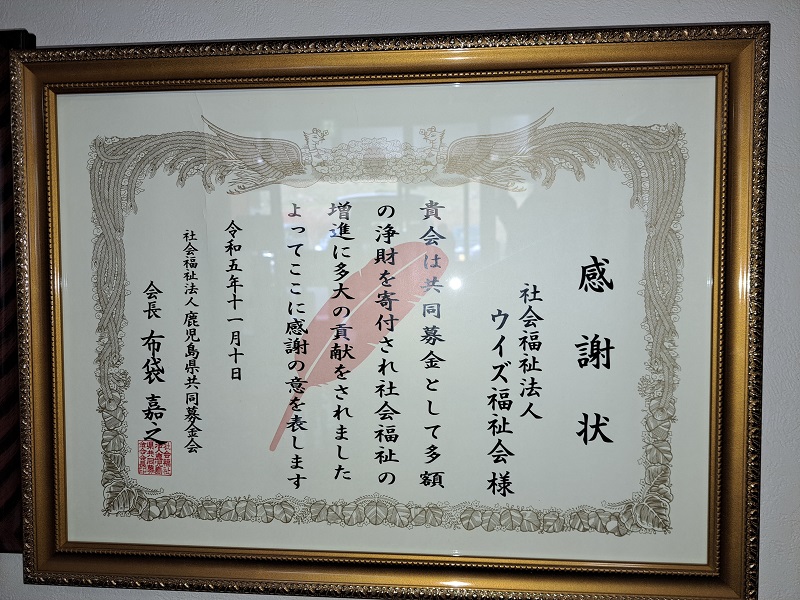 感謝状
社会福祉法人
ウイズ福祉会様
貴会は共同募金として多額
の浄財を寄付され社会福祉の
増進に多大の貢献をされました
よってここに感謝の意を表します
令和五年十一月十日
社会福祉法人鹿児島県共同募金会
会長 布袋嘉之